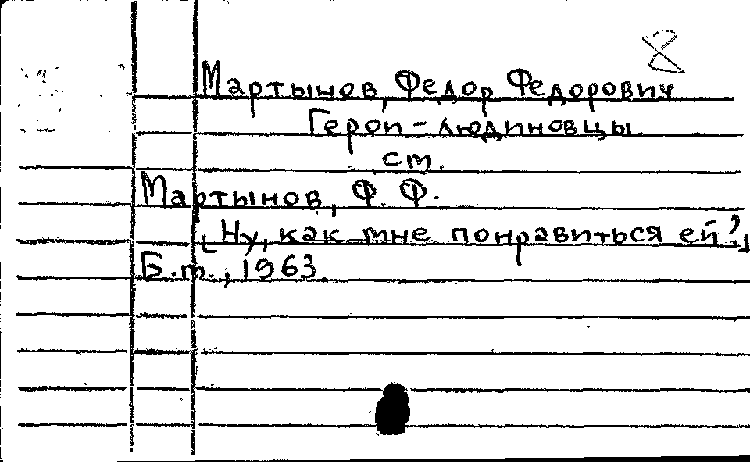 8
Мартынов, Федор Федорович
Герои-людиновцы
ст.
Мартынов, Ф. Ф.
[Ну, как мне понравиться ей?]
Б.т., 1963.